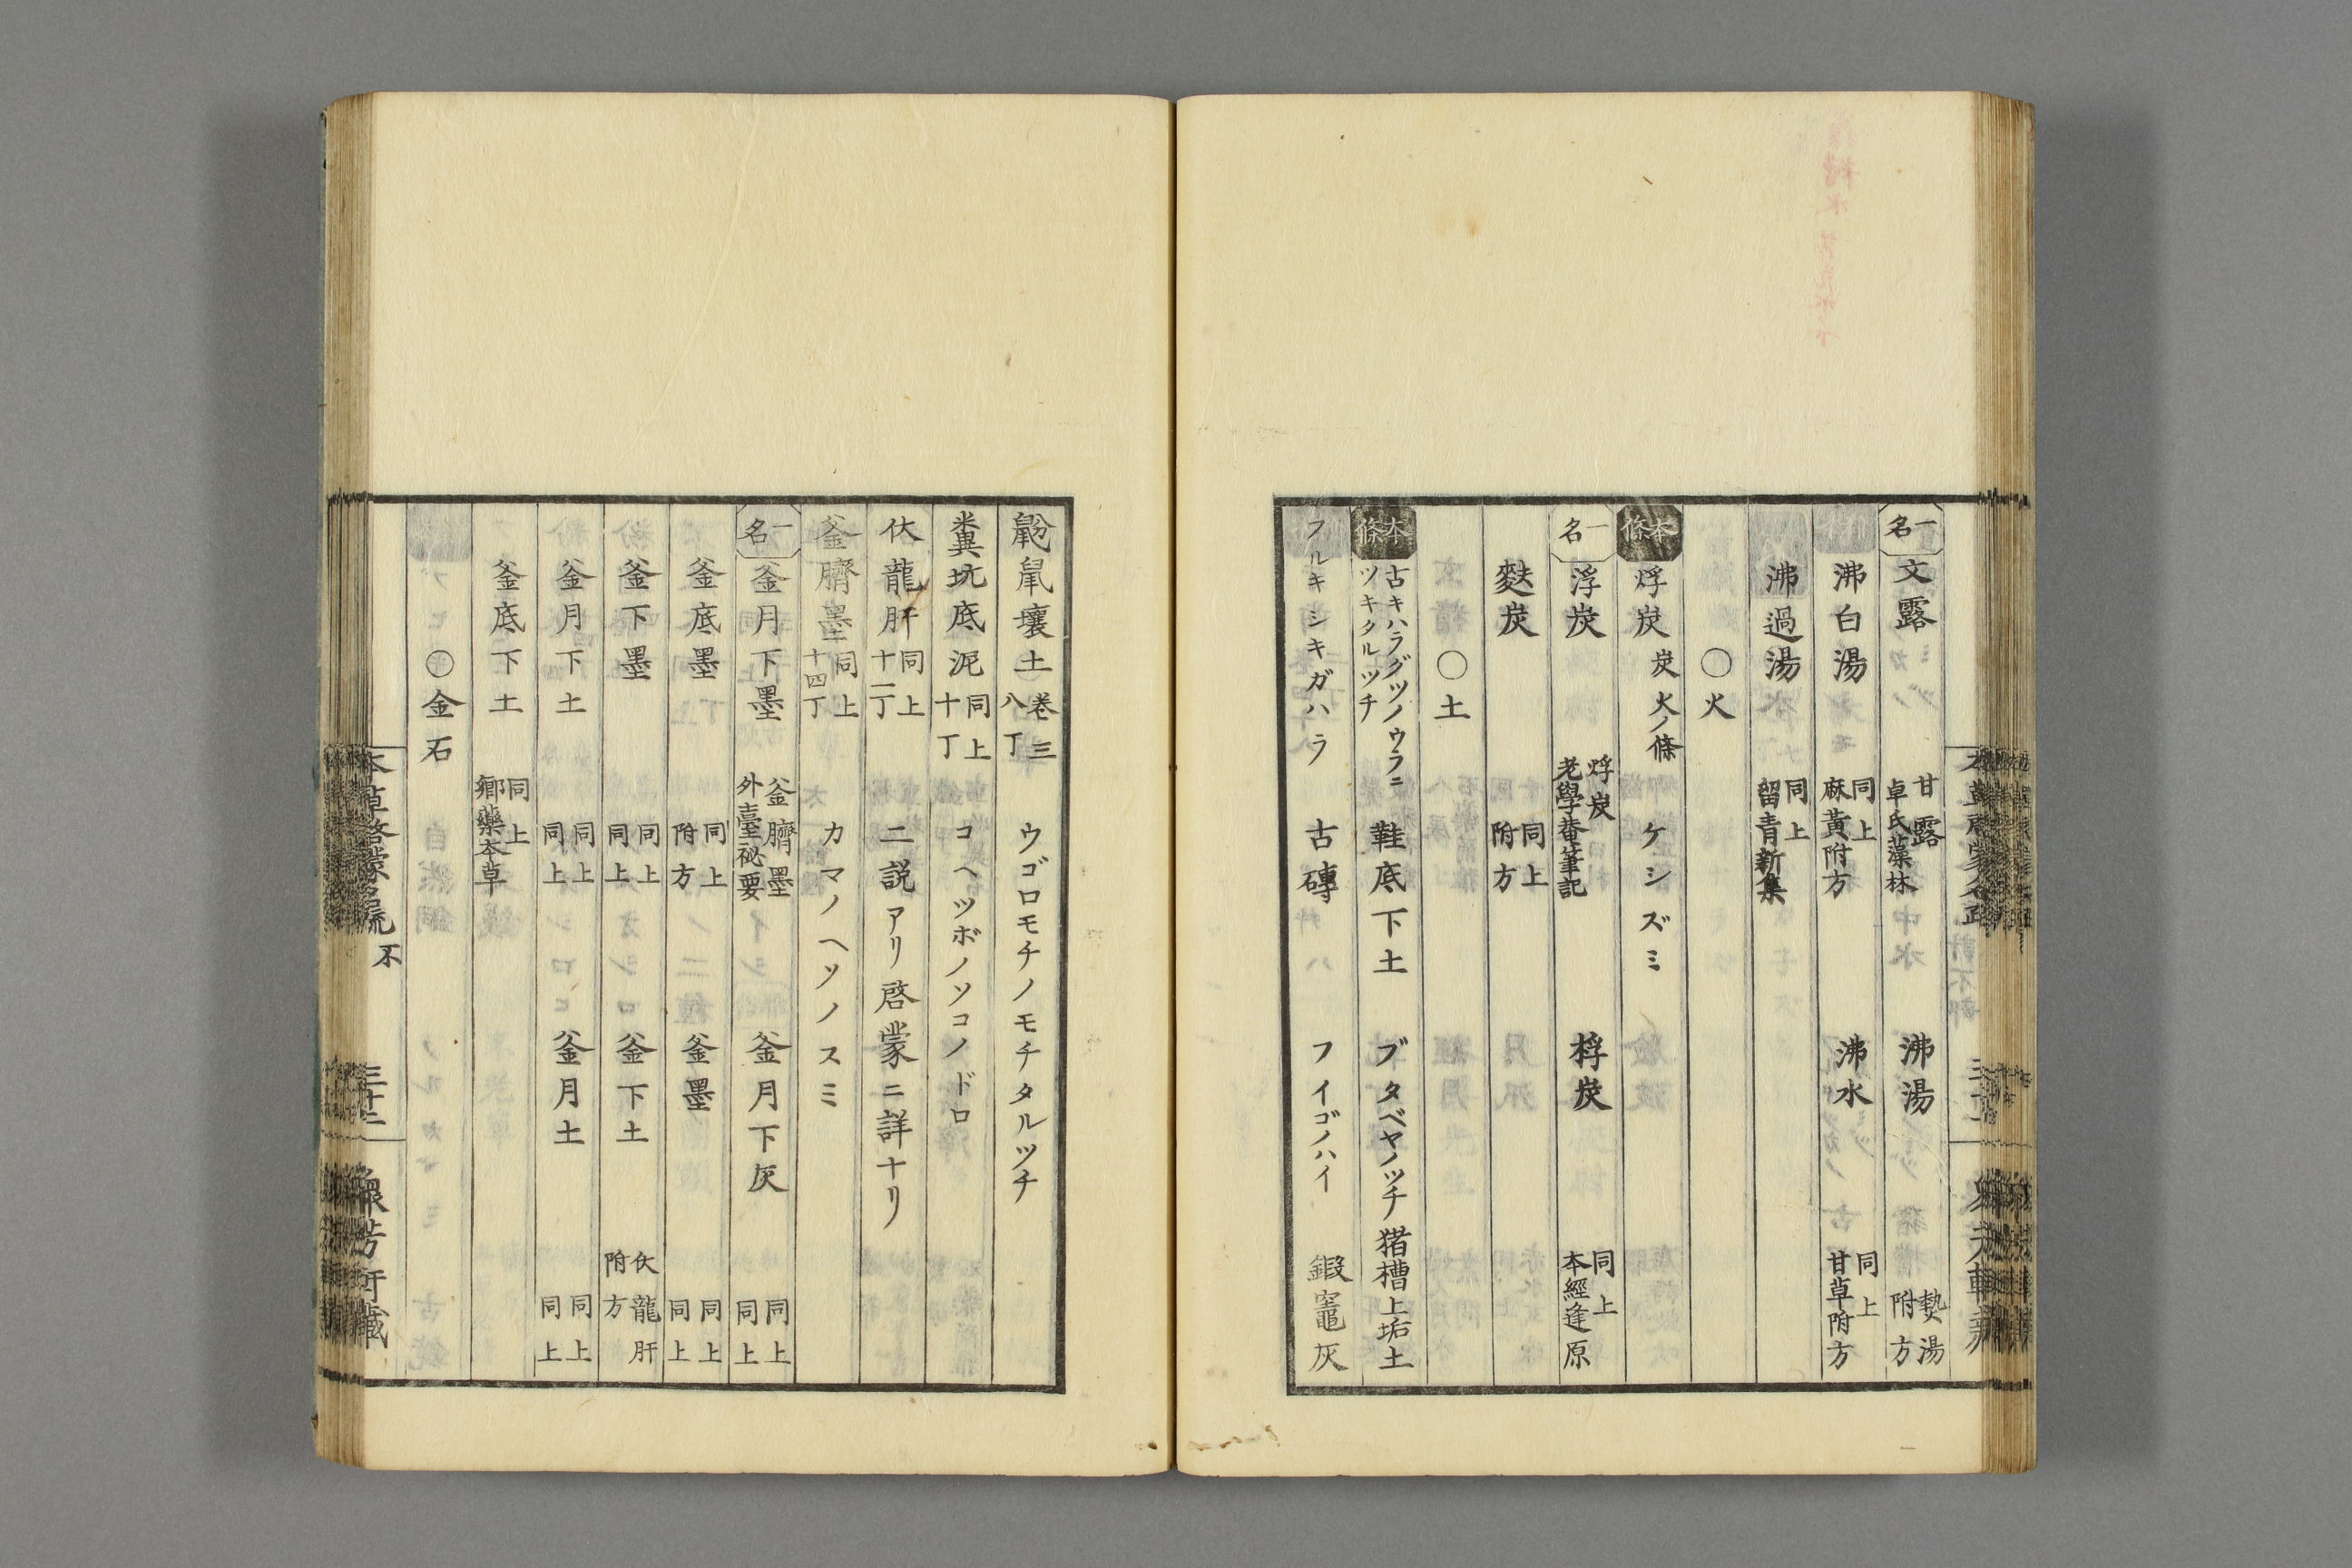 一名 文露 甘露 卓氏藻林 沸湯 熱湯附方
沸白湯 同上 麻黃附方 沸水 同上 甘草附方
沸過湯 同上 留青新集
〇火
本條 烰炭 炭火ノ條 ケシズミ
一名 浮炭 烰炭 老學菴筆記 桴炭 同上 本經逢原
麩炭 同上 附方
〇土
本條 古キハラグツノウラニツキタルツチ 鞋底下土 ブタベヤノツチ 猪槽上垢土
フルキシキガハラ 古磚 フイゴノハイ 鍛竈灰
鼢鼠壤土 卷三 八丁 ウゴロモチノモチタルツチ
糞坑底泥 同上 十丁 コヘツボノソコノドロ
伏龍肝 同上 十二丁 二説アリ啓蒙ニ詳ナリ
釜臍墨 同上 十四丁 カマノヘソノスミ
一名 釜月下墨 釜臍墨 外臺祕要 釜月下灰 同上 同上
釜底墨 同上 附方 釜墨 同上 同上
釜下墨 同上 同上 釜下土 伏龍肝 附方
釜月下土 同上 同上 釜月土 同上 同上
釜底下土 同上 鄉藥本草
〇金石
本草啓蒙名疏 不 三十二 衆芳軒藏